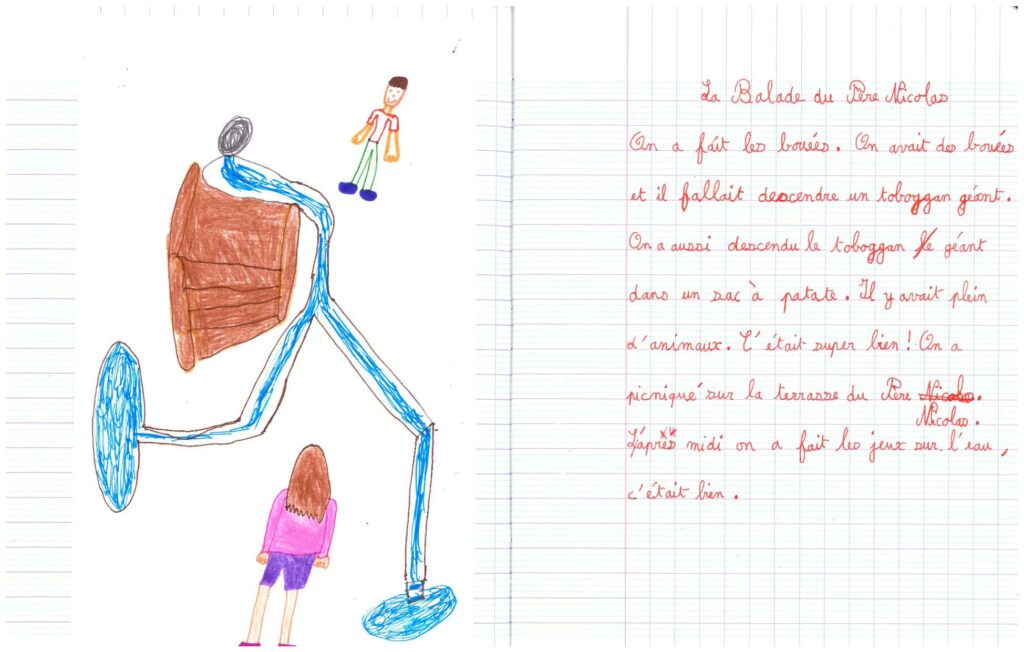 La Balade du Père Nicolas
On a fait les bouées. On avait des bouées
et il fallait descendre un toboggan géant.
On a aussi descendu le toboggan le géant
dans un sac à patate. Il y avait plein
d'animaux. C'était super bien ! On a
picniqué sur la terrasse du Père Nicolas.
Nicolas.
L'après midi on a fait les jeux sur l'eau,
c'était bien.